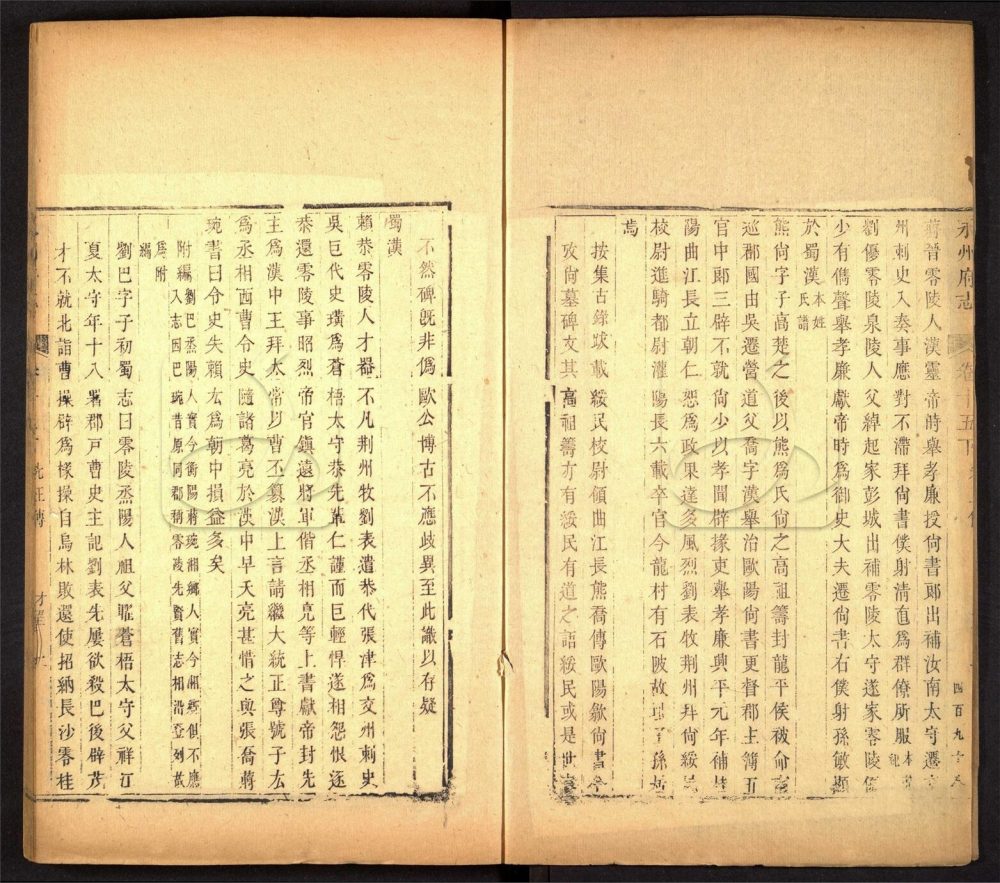 永州府志
蔣晉零陵人漢靈帝時舉孝廉授尚書郎出補汝南太守遷
州刺史入奏事應對不滯拜尚書僕射清直爲群僚所服
劉優零陵泉陵人父緯起家彭城出補零陵太守遂家零陵優
少有儁聲舉孝廉獻帝時爲御史大夫遷尚書右僕射孫敏顯
於蜀漢本姓氏譜
熊尚字子高楚之後以熊爲氏尚之高祖籌封龍平侯被命
巡郡國由吳遷營道父喬字漢舉治歐陽尚書更督郡主簿五
官中郎三辟不就尚少以孝聞辟掾吏舉孝廉興平元年補桂
陽曲江長立朝仁恕爲政果達多風烈劉表牧荆州拜尚綏民
校尉進騎都尉灌陽長六載卒官今龍村有石陂故
焉
按集古錄跋載綏民校尉領曲江長熊喬傳歐陽歙尚書
攷尚墓碑文其高祖籌亦有綏民有道之語綏民或是世
四百九十
不然碑旣非僞歐公博古不應歧異至此識以存疑
蜀漢
賴恭零陵人才器不凡荆州牧劉表遣恭代張津爲交州刺史
吳巨代史璜爲蒼梧太守恭先輩仁謹而巨輕悍遂相怨恨逐
恭還零陵事昭烈帝官鎮遠將軍偕丞相亮等上書獻帝封先
主爲漢中王拜太常以曹丕篡漢上言請繼大統正尊號子厷
爲丞相西曹令史隨諸葛亮於漢中早夭亮甚惜之與張裔蔣
琬書曰令史失賴厷爲朝中損益多矣
附編劉巴烝陽人實今衡陽蔣琬湘鄉人實今湘鄉俱不應
入志因巴琬昔原同郡稱零陵先賢舊志相沿登列茲
爲附
編
劉巴字子初蜀志曰零陵烝陽人祖父曜蒼梧太守父祥江
夏太守年十八署郡戶曹史主記劉表先屢欲殺巴後辟茂
才不就北詣曹操辟爲掾操自烏林敗還使招納長沙零桂
先正傳